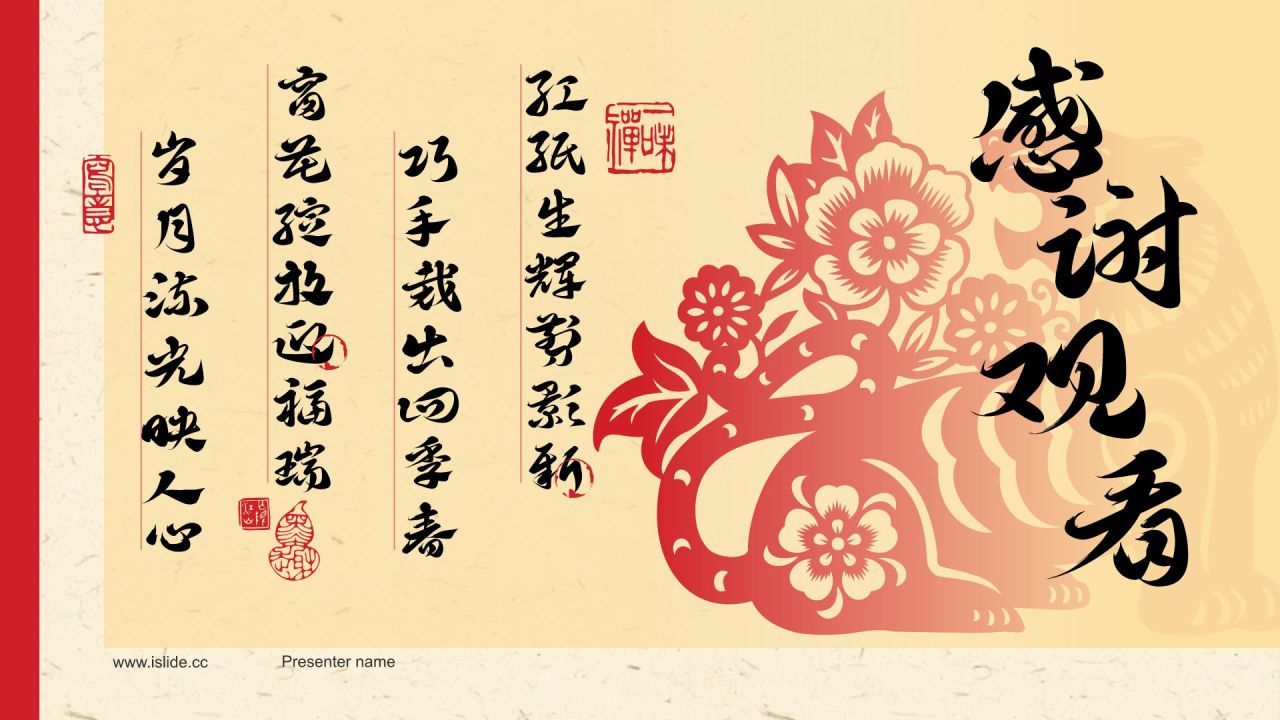 感谢观看
红纸生辉剪影新
巧手裁出四季春
窗花绽放迎福瑞
岁月流光映人心
一味禅
www.islide.cc
Presenter name